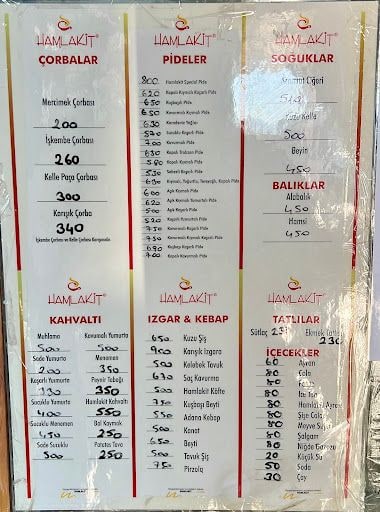 HAMLAKİT
ÇORBALAR
Mercimek Çorbası
200
İşkembe Çorbası
260
Kelle Paça Çorbası
300
Karışık Çorba
340
İşkembe Çorbası ve Kelle Çorbası Karışımıdır.
HAMLAKİT
PİDELER
800 Hamlakit Special Pide
620 Kapalı Kıymalı Kaşarlı Pide
650 Kuşbaşılı Pide
650 Kavurmalı Kıymalı Pide
630 Karadeniz Yağlısı
570 Sucuklu Kaşarlı Pide
700 Kavurmalı Pide
630 Kapalı Trabzon Pide
580 Kapalı Kıymalı Pide
530 Sebzeli Kaşarlı Pide
630 Kıymalı, Yoğurtlu, Tereyağlı, Kapalı Pide
600 Açık Kıymalı Pide
620 Açık Kıymalı Yumurtalı Pide
500 Açık Kaşarlı Pide
520 Kaşarlı Yumurtalı Pide
750 Kavurmalı Kaşarlı Pide
730 Kavurmalı Kıymalı Kaşarlı Pide
690 Kuşbaşı Kaşarlı Pide
700 Kapalı Kavurmalı Pide
HAMLAKİT
SOĞUKLAR
Arnavut Ciğeri
Kuzu Kelle
500
Beyin
450
BALIKLAR
Alabalık
450
Hamsi
450
HAMLAKİT
KAHVALTI
Muhlama Kavurmalı Yumurta
500 500
Sade Yumurta Menemen
200 350
Kaşarlı Yumurta Peynir Tabağı
350
Sucuklu Yumurta Hamlakit Kahvaltı
400 550
Sucuklu Menemen Bal Kaymak
450 250
Sade Sucuklu Patates Tava
500 250
HAMLAKİT
IZGAR & KEBAP
650 Kuzu Şiş
900 Karışık Izgara
500 Kelebek Tavuk
670 Saç Kavurma
500 Hamlakit Köfte
750 Kuşbaşı Beyti
550 Adana Kebap
500 Kanat
650 Beyti
500 Tavuk Şiş
750 Pirzola
HAMLAKİT
TATLILAR
Sütlaç Ekmek
230
İÇECEKLER
60 Ayran
80 Cola
80 Fanta
80 Ice Tea
80 Hamlakit
80 Şişe Cola
80 Meyve Suyu
80 Şalgam
80 Niğde Gazozu
20 Küçük Su
50 Soda
30 Çay